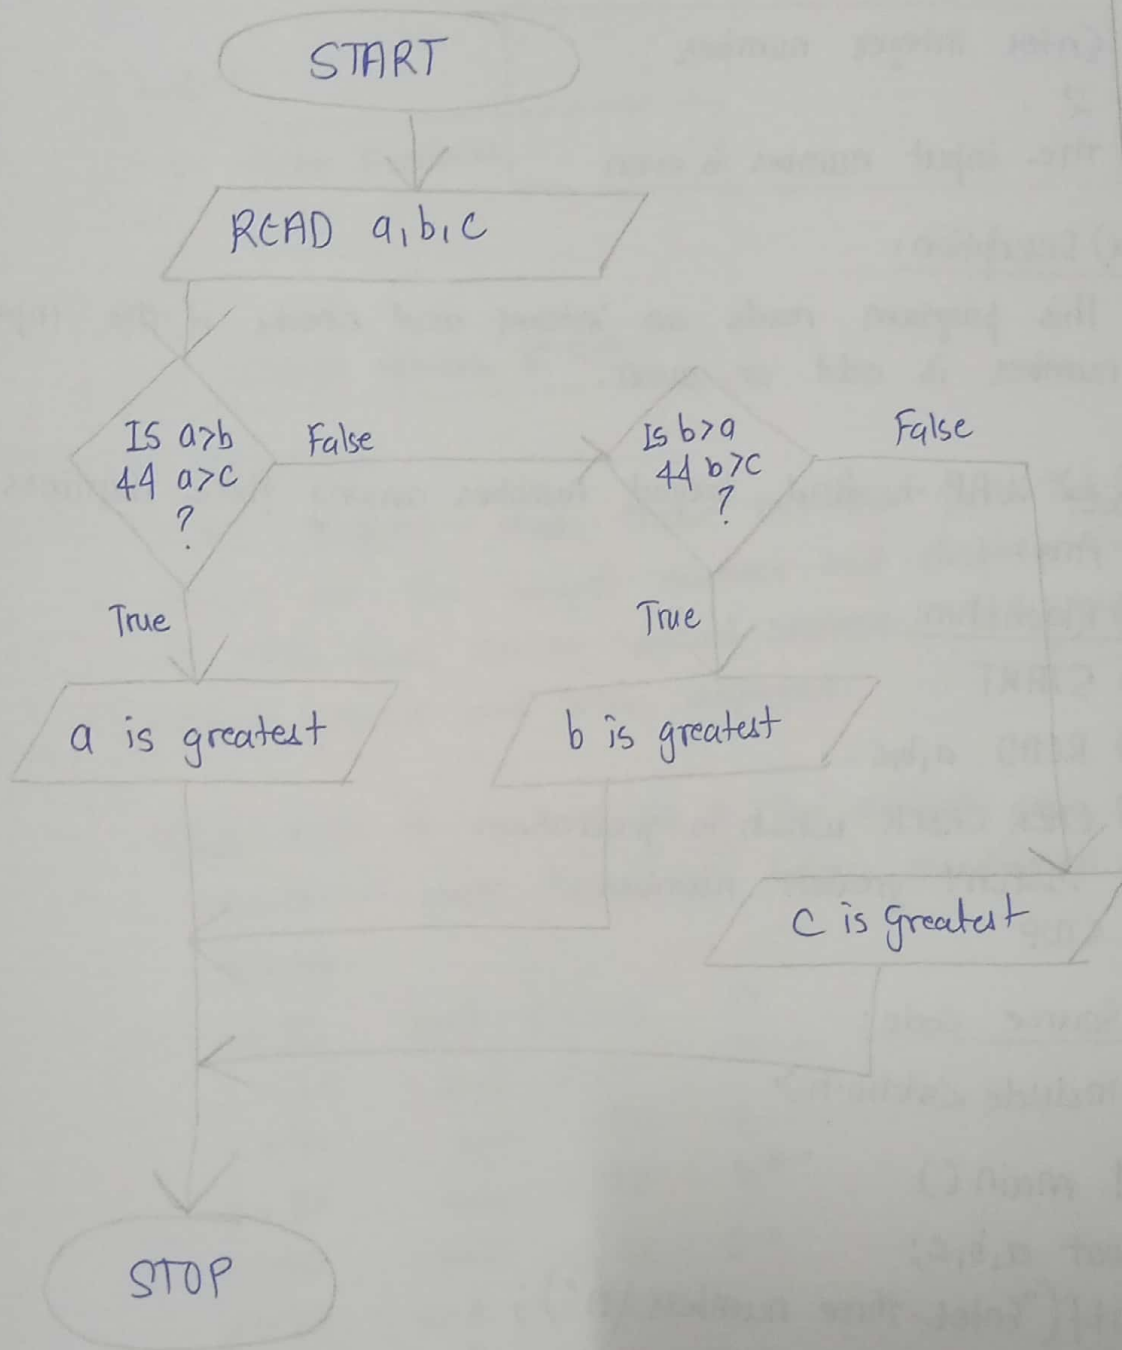 START
READ a,b,c
Is a>b
&& a>c
?
False
True
Is b>a
&& b>c
?
False
True
a is greatest
b is greatest
c is greatest
STOP